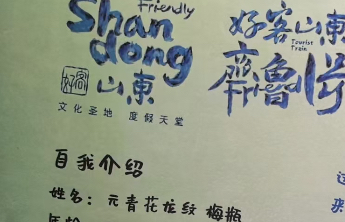 Friendly
Shan
dong
好客 山東
文化圣地 度假天堂
好客山東
Tourist
Train
齊魯
自我介绍
姓名：元青花龙纹 梅瓶